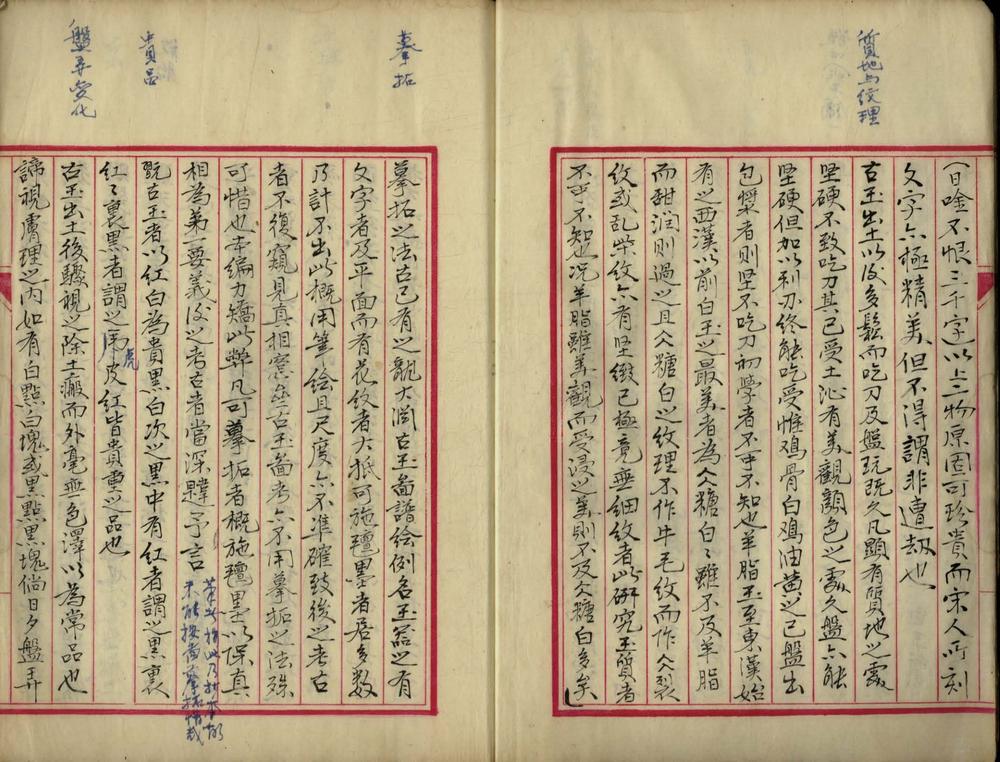 質地与紋理
一日啥不恨三千字以上二物原固可珍貴而宋人所刻
文字亦極精美但不得謂非遭劫也
古玉出土以後多鬆而吃刀及盤玩既久凡顯有質地之處
堅硬不致吃刀其已受土沁有美觀顏色之處久盤亦能
堅硬但加以利刃終能吃受惟鷄骨白鷄油黃之已盤出
包漿者則堅不吃刀初學者不可不知也羊脂玉至東漢始
有之西漢以前白玉之最美者為仌糖白仌糖白雖不及羊脂
而甜潤則過之且仌糖白之紋理不作牛毛紋而作仌裂
紋或乱柴紋亦有堅緻已極竟無細紋者此研究玉質者
不可不知也况羊脂雖美觀而受浸之美則不及仌糖白多矣
摹拓
摹拓之法古已有之觀大澗古玉圖譜绘例名玉器之有
文字者及平面而有花紋者大抵可施氊墨者居多数
乃計不出此概用筆绘且尺度亦不准確致後之考古
者不復窺見真相齋古玉圖考亦不用摹拓之法殊
可惜也本編力矯此弊凡可摹拓者概施氊墨以保真
相為第一要義後之考古者當深韙予言
未能按省摹拓惜哉
貴品
玩古玉者以紅白為貴黑白次之黑中有紅者謂之黑裏
紅紅裏黑者謂之虎皮紅皆貴重之品也
虎
盤弄變化
古玉出土後驟視之除土瘢而外毫無色澤以為常品也
諦視膚理之内如有白點白塊或黑點黑塊倘日夕盤弄